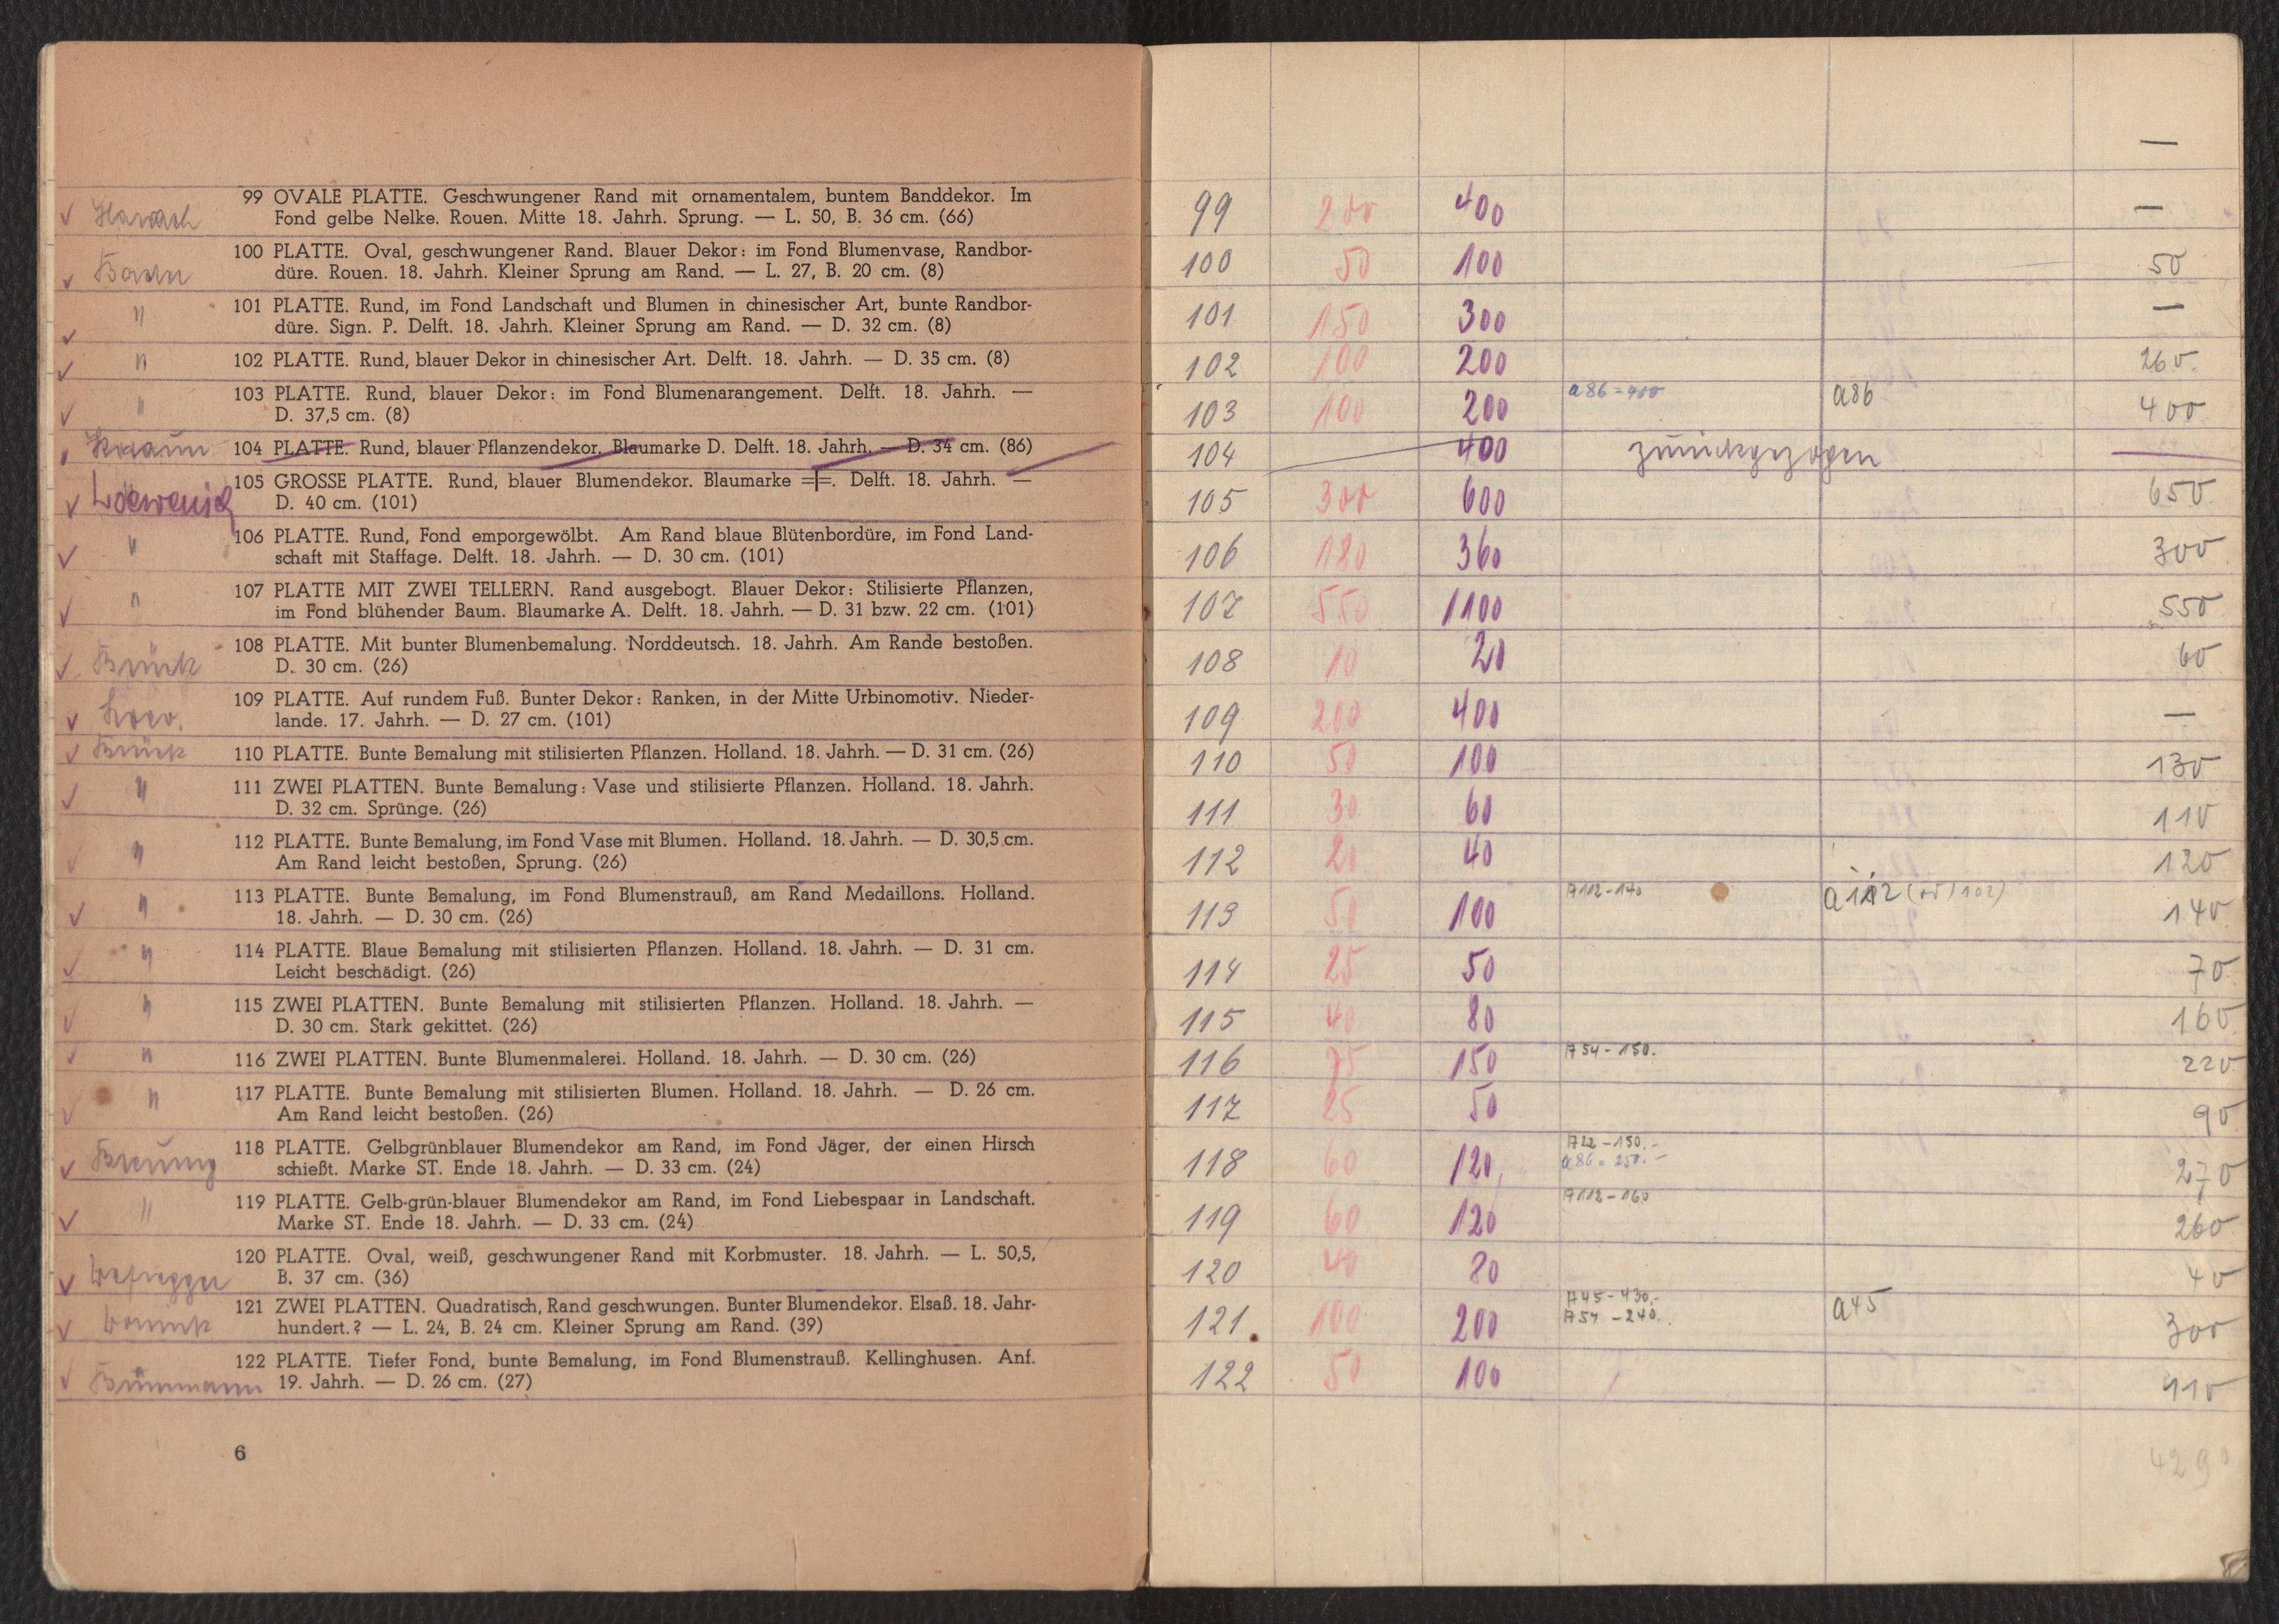 99 OVALE PLATTE. Geschwungener Rand mit ornamentalem, buntem Banddekor. Im
Fond gelbe Nelke. Rouen. Mitte 18. Jahrh. Sprung. — L. 50, B. 36 cm. (66)
100 PLATTE. Oval, geschwungener Rand. Blauer Dekor: im Fond Blumenvase, Randbor-
düre. Rouen. 18. Jahrh. Kleiner Sprung am Rand. — L. 27, B. 20 cm. (8)
" 101 PLATTE. Rund, im Fond Landschaft und Blumen in chinesischer Art, bunte Randbor-
düre. Sign. P. Delft. 18. Jahrh. Kleiner Sprung am Rand. — D. 32 cm. (8)
" 102 PLATTE. Rund, blauer Dekor in chinesischer Art. Delft. 18. Jahrh. — D. 35 cm. (8)
" 103 PLATTE. Rund, blauer Dekor: im Fond Blumenarangement. Delft. 18. Jahrh. —
D. 37,5 cm. (8)
104 PLATTE. Rund, blauer Pflanzendekor. Blaumarke D. Delft. 18. Jahrh. — D. 34 cm. (86)
105 GROSSE PLATTE. Rund, blauer Blumendekor. Blaumarke. Delft. 18. Jahrh. —
D. 40 cm. (101)
" 106 PLATTE. Rund, Fond emporgewölbt. Am Rand blaue Blütenbordüre, im Fond Land-
schaft mit Staffage. Delft. 18. Jahrh. — D. 30 cm. (101)
" 107 PLATTE MIT ZWEI TELLERN. Rand ausgebogt. Blauer Dekor: Stilisierte Pflanzen,
im Fond blühender Baum. Blaumarke A. Delft. 18. Jahrh. — D. 31 bzw. 22 cm. (101)
Brück 108 PLATTE. Mit bunter Blumenbemalung. Norddeutsch. 18. Jahrh. Am Rande bestoßen.
D. 30 cm. (26)
109 PLATTE. Auf rundem Fuß. Bunter Dekor: Ranken, in der Mitte Urbinomotiv. Nieder-
lande. 17. Jahrh. — D. 27 cm. (101)
Brück 110 PLATTE. Bunte Bemalung mit stilisierten Pflanzen. Holland. 18. Jahrh. — D. 31 cm. (26)
" 111 ZWEI PLATTEN. Bunte Bemalung: Vase und stilisierte Pflanzen. Holland. 18. Jahrh.
D. 32 cm. Sprünge. (26)
" 112 PLATTE. Bunte Bemalung, im Fond Vase mit Blumen. Holland. 18. Jahrh. — D. 30,5 cm.
Am Rand leicht bestoßen, Sprung. (26)
" 113 PLATTE. Bunte Bemalung, im Fond Blumenstrauß, am Rand Medaillons. Holland.
18. Jahrh. — D. 30 cm. (26)
" 114 PLATTE. Blaue Bemalung mit stilisierten Pflanzen. Holland. 18. Jahrh. — D. 31 cm.
Leicht beschädigt. (26)
" 115 ZWEI PLATTEN. Bunte Bemalung mit stilisierten Pflanzen. Holland. 18. Jahrh. —
D. 30 cm. Stark gekittet. (26)
" 116 ZWEI PLATTEN. Bunte Blumenmalerei. Holland. 18. Jahrh. — D. 30 cm. (26)
" 117 PLATTE. Bunte Bemalung mit stilisierten Blumen. Holland. 18. Jahrh. — D. 26 cm.
Am Rand leicht bestoßen. (26)
118 PLATTE. Gelbgrünblauer Blumendekor am Rand, im Fond Jäger, der einen Hirsch
schießt. Marke ST. Ende 18. Jahrh. — D. 33 cm. (24)
" 119 PLATTE. Gelb-grün-blauer Blumendekor am Rand, im Fond Liebespaar in Landschaft.
Marke ST. Ende 18. Jahrh. — D. 33 cm. (24)
120 PLATTE. Oval, weiß, geschwungener Rand mit Korbmuster. 18. Jahrh. — L. 50,5,
B. 37 cm. (36)
121 ZWEI PLATTEN. Quadratisch, Rand geschwungen. Bunter Blumendekor. Elsaß. 18. Jahr-
hundert.? — L. 24, B. 24 cm. Kleiner Sprung am Rand. (39)
122 PLATTE. Tiefer Fond, bunte Bemalung, im Fond Blumenstrauß. Kellinghusen. Anf.
19. Jahrh. — D. 26 cm. (27)
6
—
99 200 400 —
100 50 100 50
101 150 300 —
102 100 200 260.
103 100 200 a86=400 a86 400
104 400 zurückgezogen —
105 300 600 650.
106 180 360 300
107 550 1100 550
108 10 20 60
109 200 400 —
110 50 100 130
111 30 60 110
112 20 40 120
113 50 100 A112-140 140
114 25 50 70.
115 40 80 160
116 75 150 A54-150. 220
117 25 50 90
118 60 120 A22-150.- a86=250.- 270
119 60 120 A112-160 260
120 40 80 40
121. 100 200 A45-430.- A54-240. a45 300
122 50 100 110